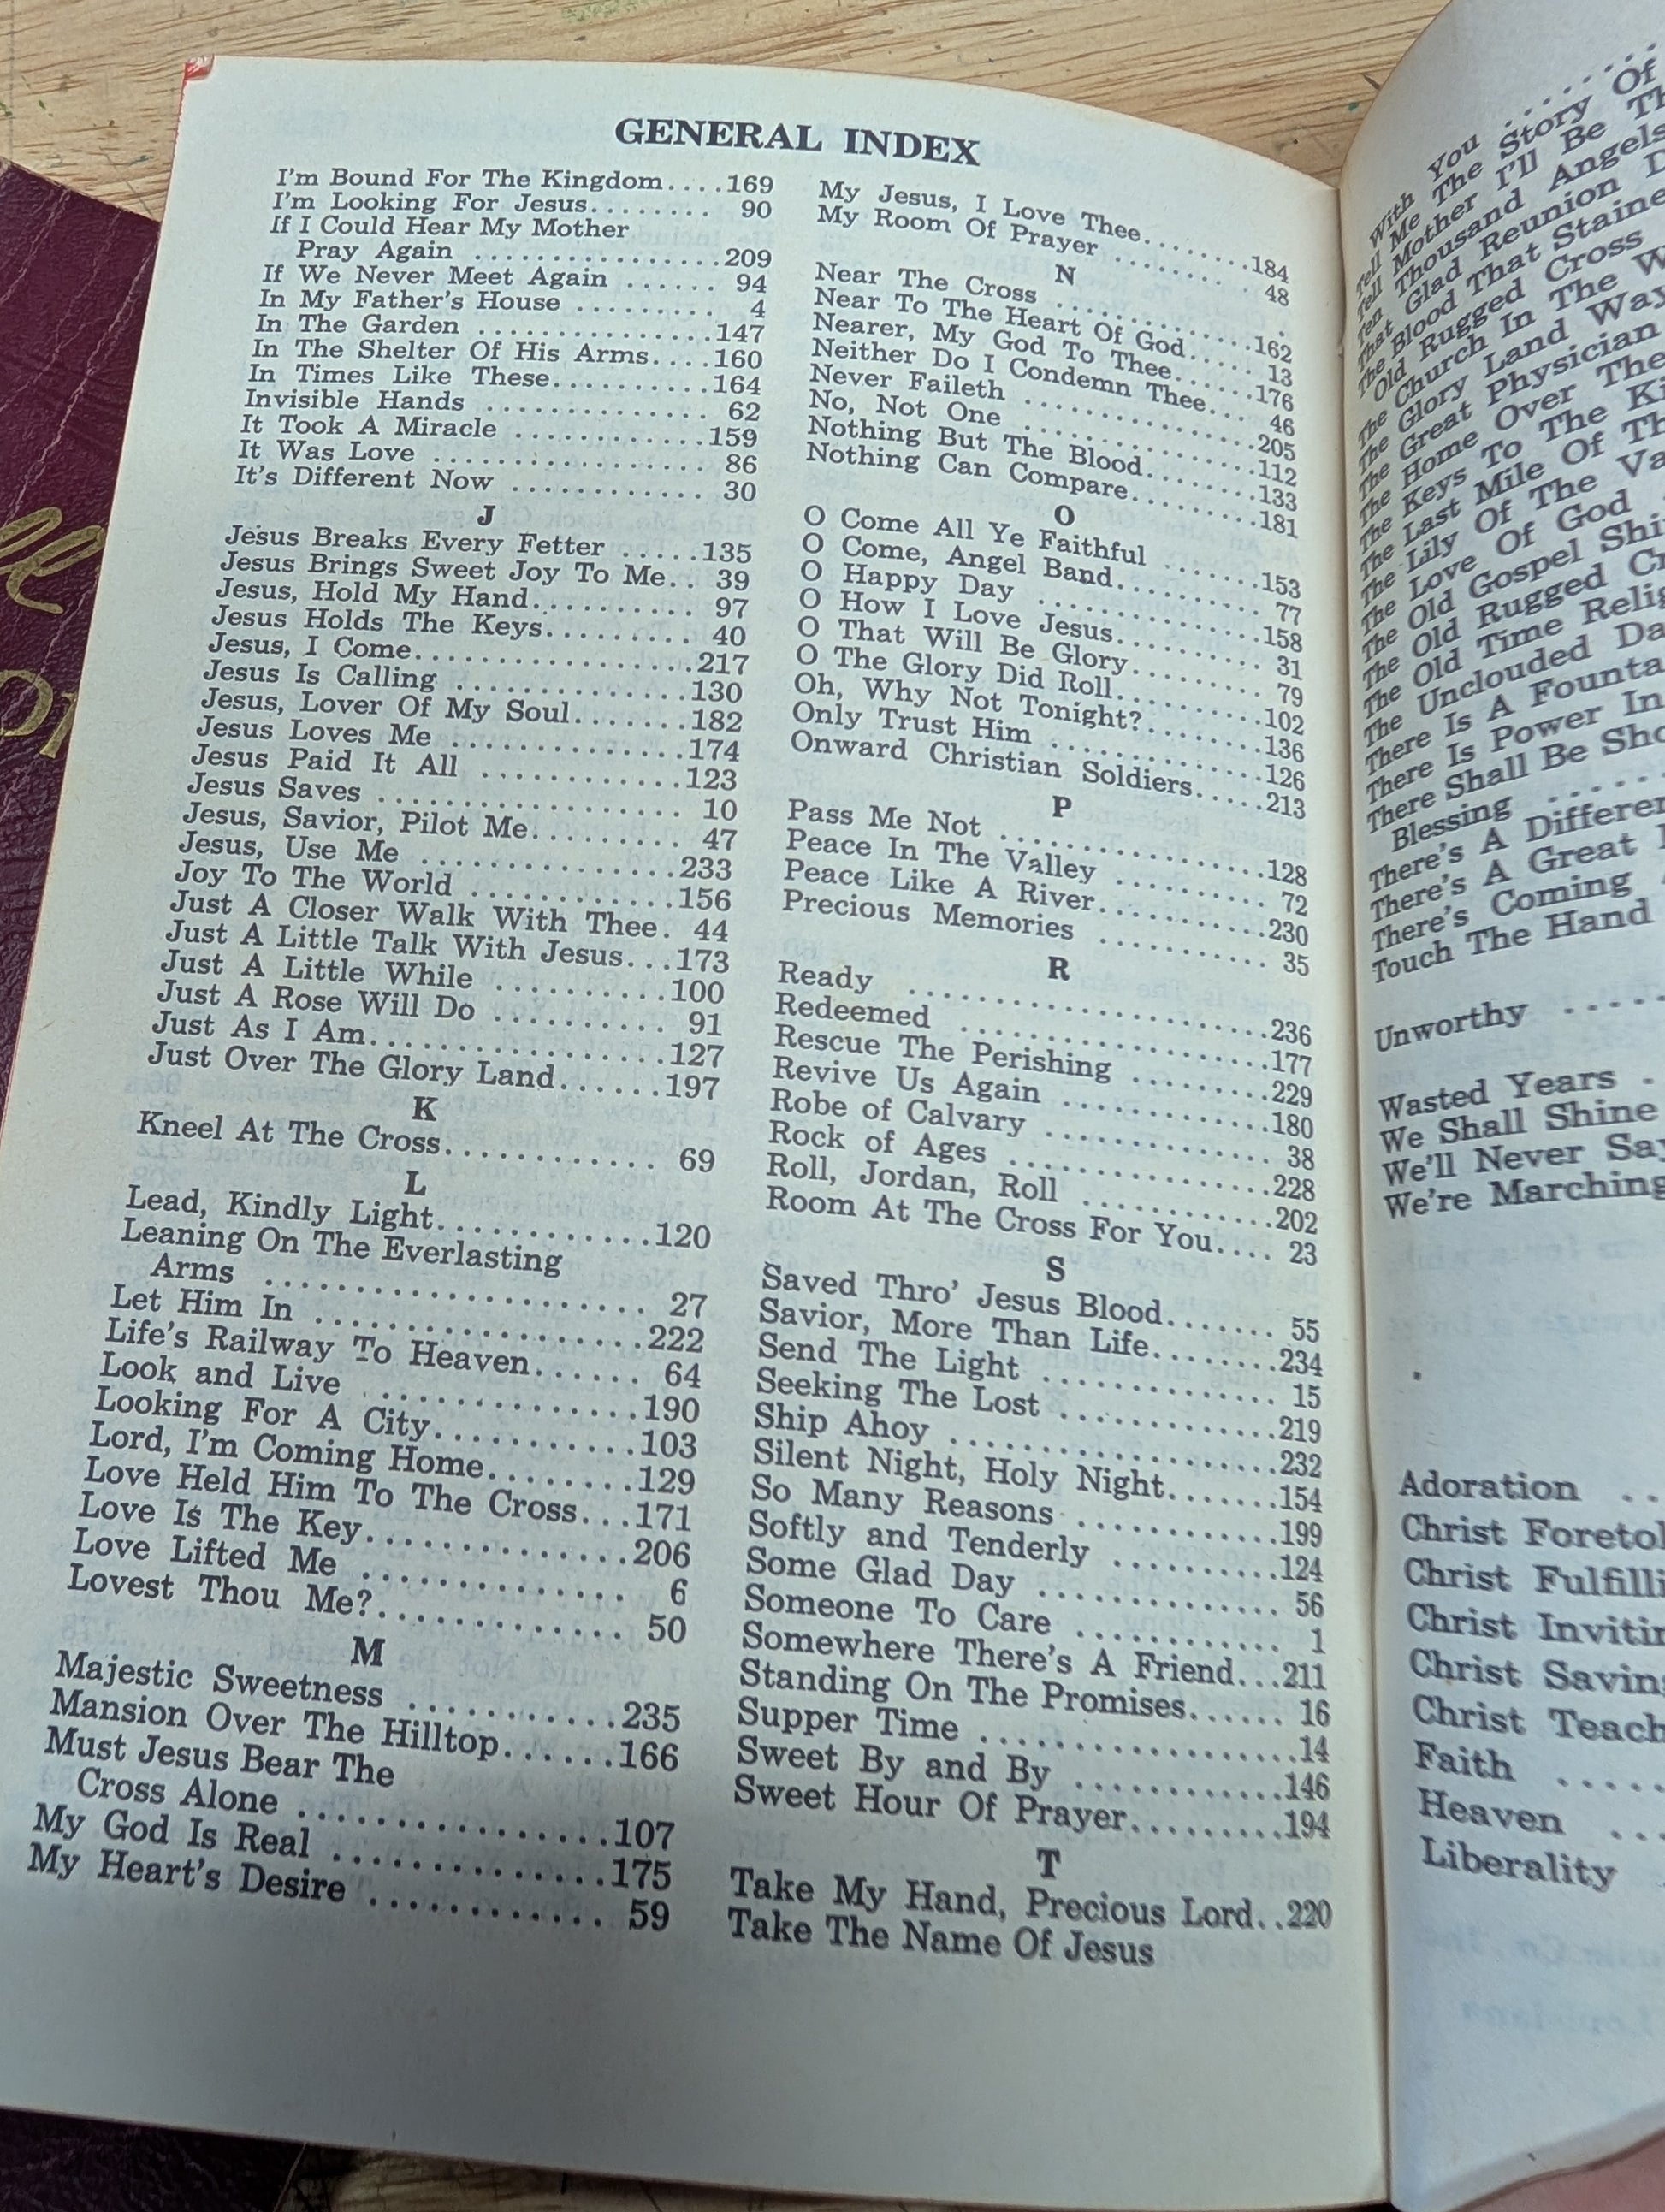 GENERAL INDEX
I'm Bound For The Kingdom....169
I'm Looking For Jesus........ 90
If I Could Hear My Mother
Pray Again .................209
If We Never Meet Again ...... 94
In My Father's House ......... 4
In The Garden ..............147
In The Shelter Of His Arms....160
In Times Like These..........164
Invisible Hands ............... 62
It Took A Miracle ............159
It Was Love ................. 86
It's Different Now ............ 30
J
Jesus Breaks Every Fetter .....135
Jesus Brings Sweet Joy To Me.. 39
Jesus, Hold My Hand.......... 97
Jesus Holds The Keys......... 40
Jesus, I Come.................217
Jesus Is Calling ..............130
Jesus, Lover Of My Soul.......182
Jesus Loves Me ..............174
Jesus Paid It All ............123
Jesus Saves .................. 10
Jesus, Savior, Pilot Me........ 47
Jesus, Use Me ...............233
Joy To The World ............156
Just A Closer Walk With Thee. 44
Just A Little Talk With Jesus...173
Just A Little While ..........100
Just A Rose Will Do .......... 91
Just As I Am..................127
Just Over The Glory Land......197
K
Kneel At The Cross............ 69
L
Lead, Kindly Light............120
Leaning On The Everlasting
Arms ...................... 27
Let Him In ..................222
Life's Railway To Heaven...... 64
Look and Live ...............190
Looking For A City...........103
Lord, I'm Coming Home........129
Love Held Him To The Cross...171
Love Is The Key..............206
Love Lifted Me .............. 6
Lovest Thou Me?.............. 50
M
Majestic Sweetness ...........235
Mansion Over The Hilltop......166
Must Jesus Bear The
Cross Alone ................107
My God Is Real ..............175
My Heart's Desire ............ 59
My Jesus, I Love Thee........184
My Room Of Prayer ......... 48
N
Near The Cross ..............162
Near To The Heart Of God..... 13
Nearer, My God To Thee......176
Neither Do I Condemn Thee.... 46
Never Faileth ...............205
No, Not One ................112
Nothing But The Blood........133
Nothing Can Compare.........181
O
O Come All Ye Faithful .......153
O Come, Angel Band.......... 77
O Happy Day ...............158
O How I Love Jesus.......... 31
O That Will Be Glory......... 79
O The Glory Did Roll.........102
Oh, Why Not Tonight?........136
Only Trust Him .............126
Onward Christian Soldiers.....213
P
Pass Me Not ................128
Peace In The Valley ......... 72
Peace Like A River..........230
Precious Memories .......... 35
R
Ready .....................236
Redeemed ..................177
Rescue The Perishing ........229
Revive Us Again ............180
Robe of Calvary ............. 38
Rock of Ages ...............228
Roll, Jordan, Roll ...........202
Room At The Cross For You.... 23
S
Saved Thro' Jesus Blood....... 55
Savior, More Than Life........234
Send The Light ............. 15
Seeking The Lost ............219
Ship Ahoy ..................232
Silent Night, Holy Night.......154
So Many Reasons ............199
Softly and Tenderly ..........124
Some Glad Day .............. 56
Someone To Care ............ 1
Somewhere There's A Friend...211
Standing On The Promises...... 16
Supper Time .................14
Sweet By and By ............146
Sweet Hour Of Prayer.........194
T
Take My Hand, Precious Lord..220
Take The Name Of Jesus
With You .......
Tell Me The Story Of
Tell Mother I'll Be
Ten Thousand Angels
That Glad Reunion
The Blood That
Old Rugged Cross
The Church In The
The Glory Land Way
The Great Physician
The Home Over The
The Keys To The
The Last Mile Of
The Lily Of The
The Love Of God
The Old Gospel
The Old Rugged
The Old Time
The Unclouded
There Is A
There Is Power In
There Shall Be
Blessing ....
There's A
There's A Great
There's Coming
Touch The Hand
Unworthy .....
Wasted Years .
We Shall Shine
We'll Never
We're Marching
Adoration ..
Christ
Christ
Christ
Christ
Christ
Faith ....
Heaven ...
Liberality